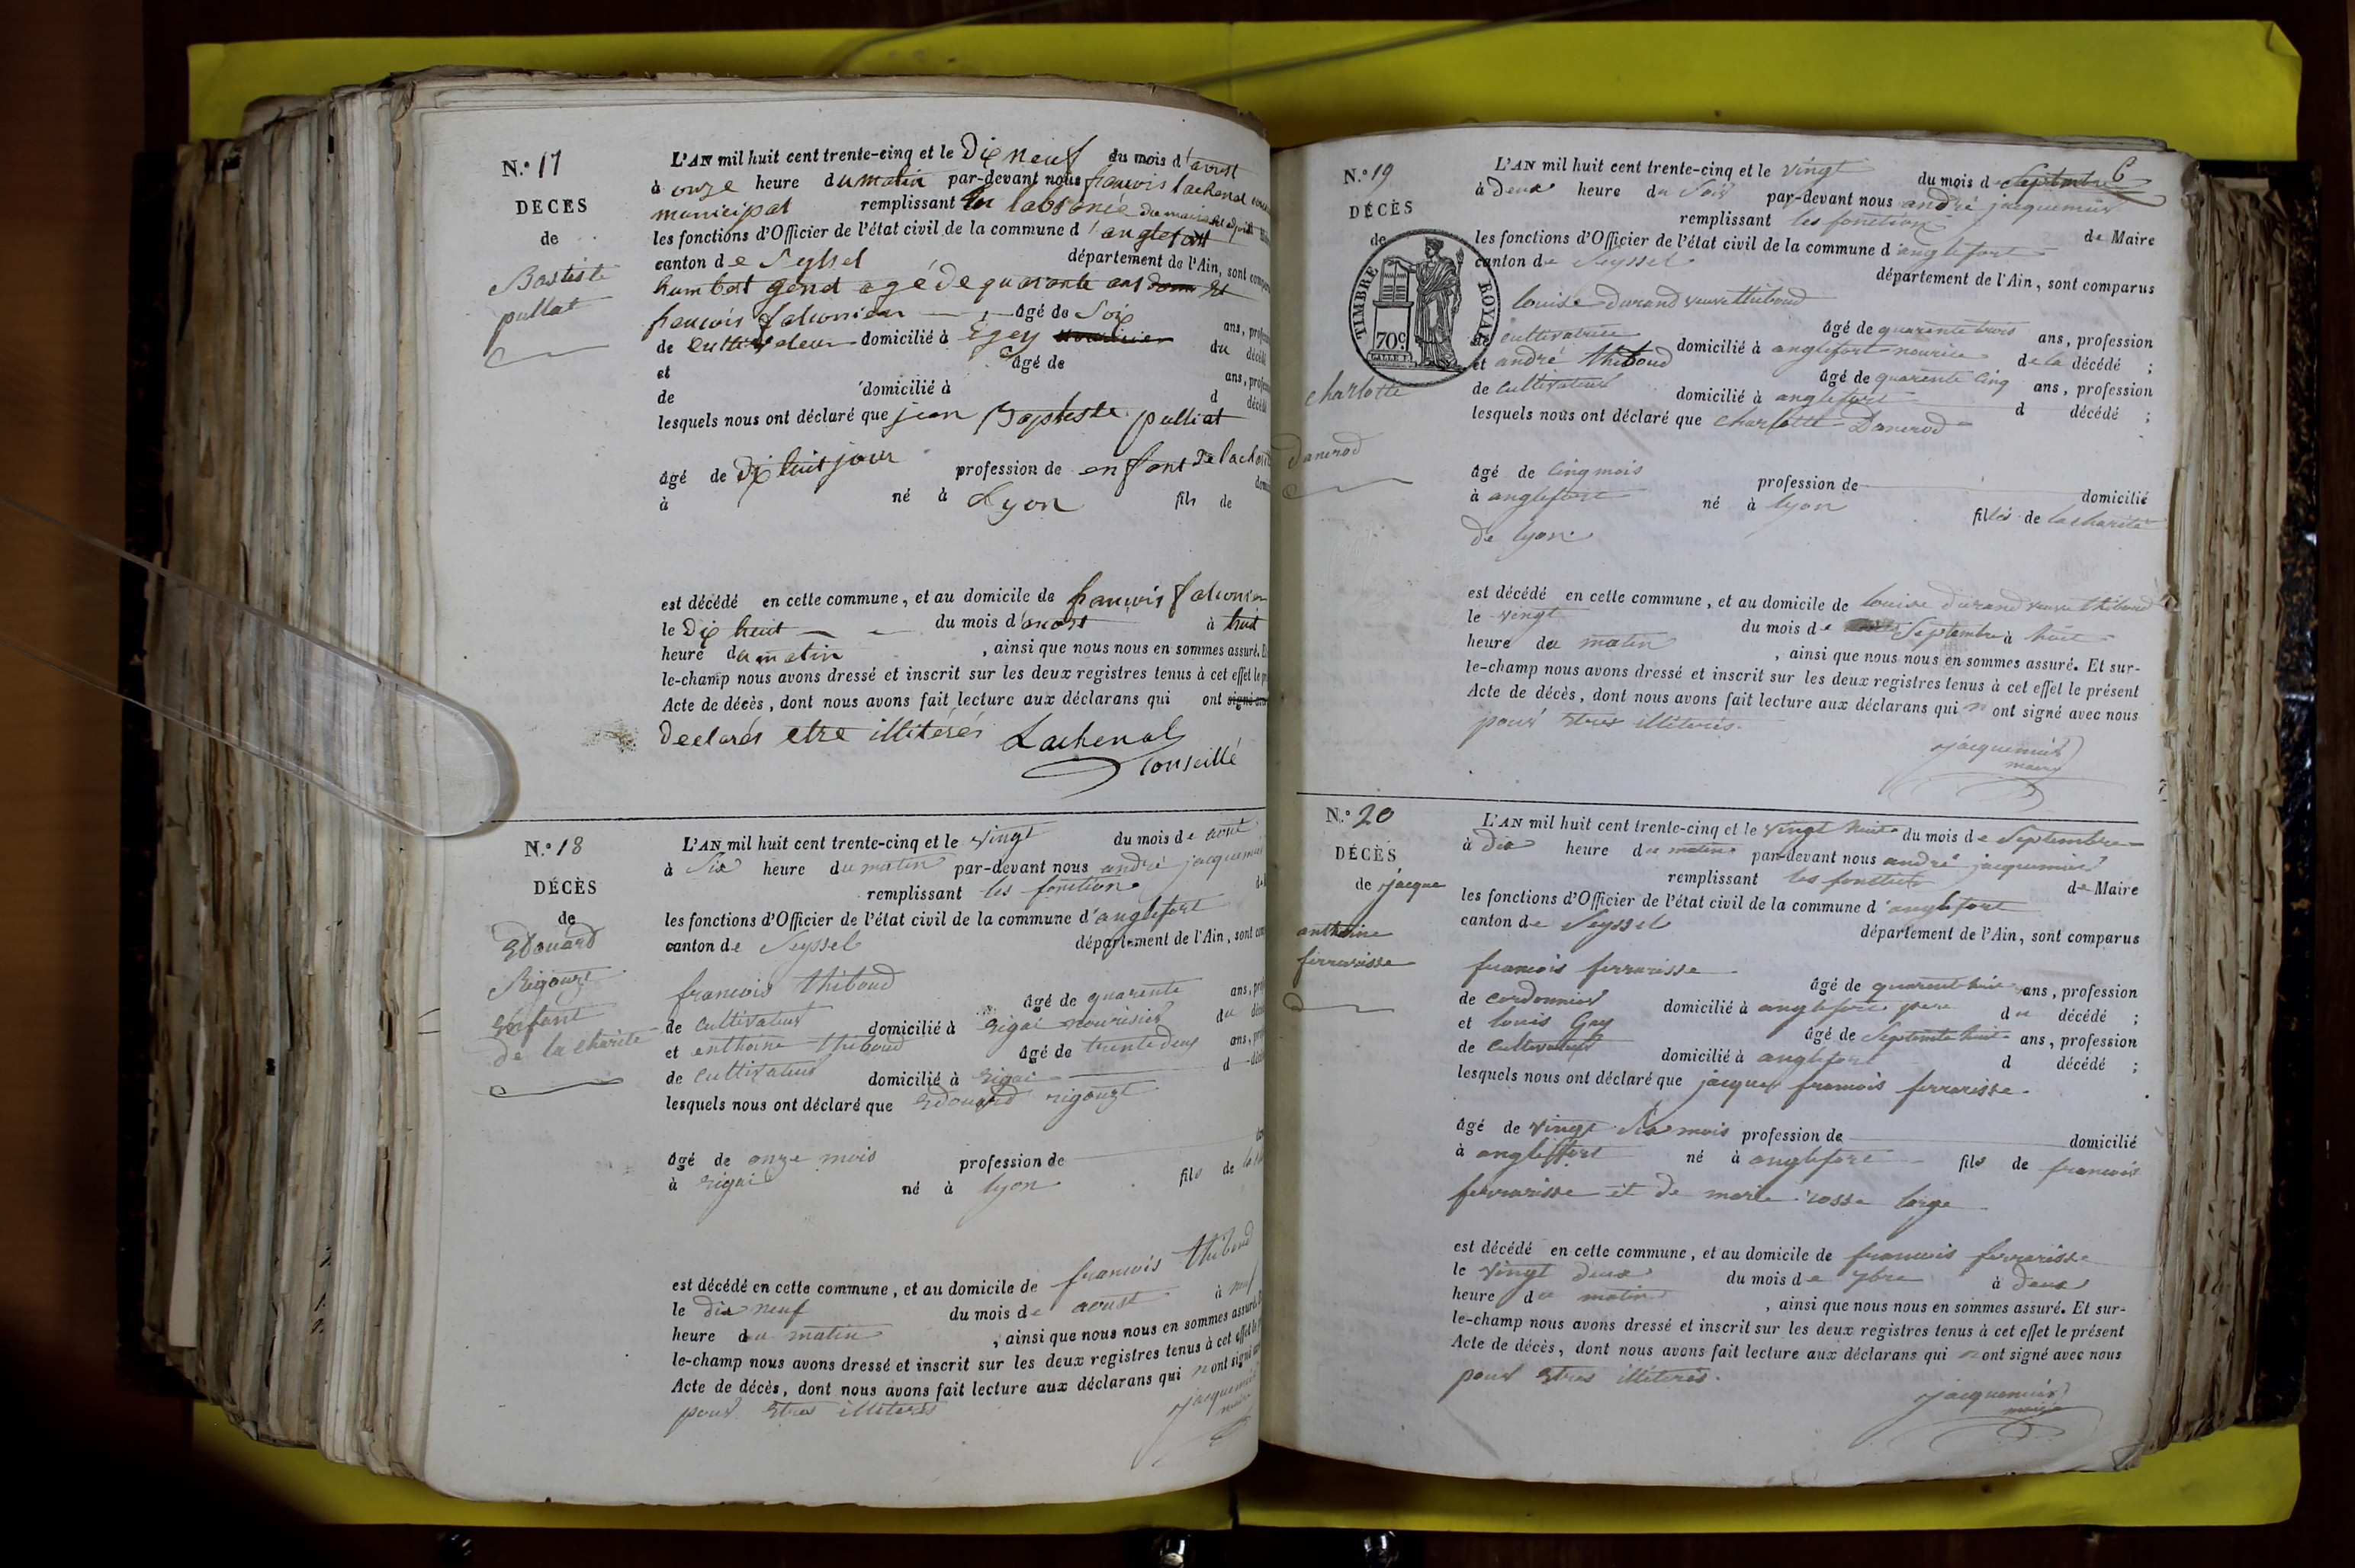 N.º 17
DECES
de
Bastiste
pullat
L'AN mil huit cent trente-cinq et le Dix neuf du mois d'avost
à onze heure du matin par-devant nous francois lachenal
municipal remplissant labsance du maire
les fonctions d'Officier de l'état civil de la commune d'anglefort
canton de Seyssel département de l'Ain, sont
humbert genet agé de quarante ans et
francois falconnier âgé de Soix ans,
de Cultivateur domicilié à Egey du décédé
et âgé de ans,
de domicilié à d décédé
lesquels nous ont déclaré que jean Baptiste pulliat
âgé de Dix huit jour profession de enfant de la
à né à Lyon fils de
est décédé en cette commune, et au domicile de francois
le Dix huit du mois d'avost à huit
heure du matin , ainsi que nous nous en sommes assuré.
le-champ nous avons dressé et inscrit sur les deux registres tenus à cet effet le
Acte de décès, dont nous avons fait lecture aux déclarans qui ont signé
Declarés etre illitérés Lachenal
Conseillé
N.º 18
DÉCÈS
de
Edouard
Rigouze
Enfant
de la charité
L'AN mil huit cent trente-cinq et le vingt du mois de aout
à Six heure du matin par-devant nous andré jacquemier
remplissant les fonction
les fonctions d'Officier de l'état civil de la commune d'anglefort
canton de Seyssel département de l'Ain, sont
francois thiboud âgé de quarente ans,
de Cultivateur domicilié à Eigai nourisier du
et enthoine thiboud âgé de trente deux ans,
de Cultivateur domicilié à Eigai d
lesquels nous ont déclaré que Edouard rigouze
âgé de onze mois profession de
à Eigai né à lyon fils de la
est décédé en cette commune, et au domicile de francois thiboud
le dix neuf du mois de aoust à neuf
heure du matin , ainsi que nous nous en sommes assuré.
le-champ nous avons dressé et inscrit sur les deux registres tenus à cet effet le
Acte de décès, dont nous avons fait lecture aux déclarans qui n ont signé
pour Etres illiterés jacquemier
N.º 19
DÉCÈS
de
TIMBRE ROYAL
70c
charlotte
Dancrod
L'AN mil huit cent trente-cinq et le vingt du mois de Septembre 6
à Deux heure du Soir par-devant nous andré jacquemier
remplissant les fonction de Maire
les fonctions d'Officier de l'état civil de la commune d'anglefort
canton de Seyssel département de l'Ain, sont comparus
louise durand veuve thiboud âgé de quarente trois ans, profession
de cultivatrice domicilié à anglefort nourice de la décédé ;
et andré thiboud âgé de quarente cinq ans, profession
de Cultivateur domicilié à anglefort d décédé ;
lesquels nous ont déclaré que Charlotte Dancrod
âgé de cinq mois profession de domicilié
à anglefort né à lyon filles de la charité
de lyon
est décédé en cette commune, et au domicile de louise durand veuve thiboud
le vingt du mois de Septembre à huit
heure du matin , ainsi que nous nous en sommes assuré. Et sur-
le-champ nous avons dressé et inscrit sur les deux registres tenus à cet effet le présent
Acte de décès, dont nous avons fait lecture aux déclarans qui n ont signé avec nous
pour Etres illiterés. jacquemier
maire
N.º 20
DÉCÈS
de jacque
anthoine
ferrarisse
L'AN mil huit cent trente-cinq et le vingt huit du mois de Septembre
à dix heure du matin par-devant nous andré jacquemier
remplissant les fonction de Maire
les fonctions d'Officier de l'état civil de la commune d'anglefort
canton de Seyssel département de l'Ain, sont comparus
francois ferrarisse âgé de quarent huit ans, profession
de cordonnier domicilié à anglefort pere du décédé ;
et louis Gay âgé de Septente huit ans, profession
de Cultivateur domicilié à anglefort d décédé ;
lesquels nous ont déclaré que jacques francois ferrarisse
âgé de vingt Six mois profession de domicilié
à angleffort né à anglefort fils de francois
ferrarisse et de marie rosse large
est décédé en cette commune, et au domicile de francois ferrarisse
le vingt deux du mois de 7bre à deux
heure du matin , ainsi que nous nous en sommes assuré. Et sur-
le-champ nous avons dressé et inscrit sur les deux registres tenus à cet effet le présent
Acte de décès, dont nous avons fait lecture aux déclarans qui n ont signé avec nous
pour Etres illiterés. jacquemier
maire